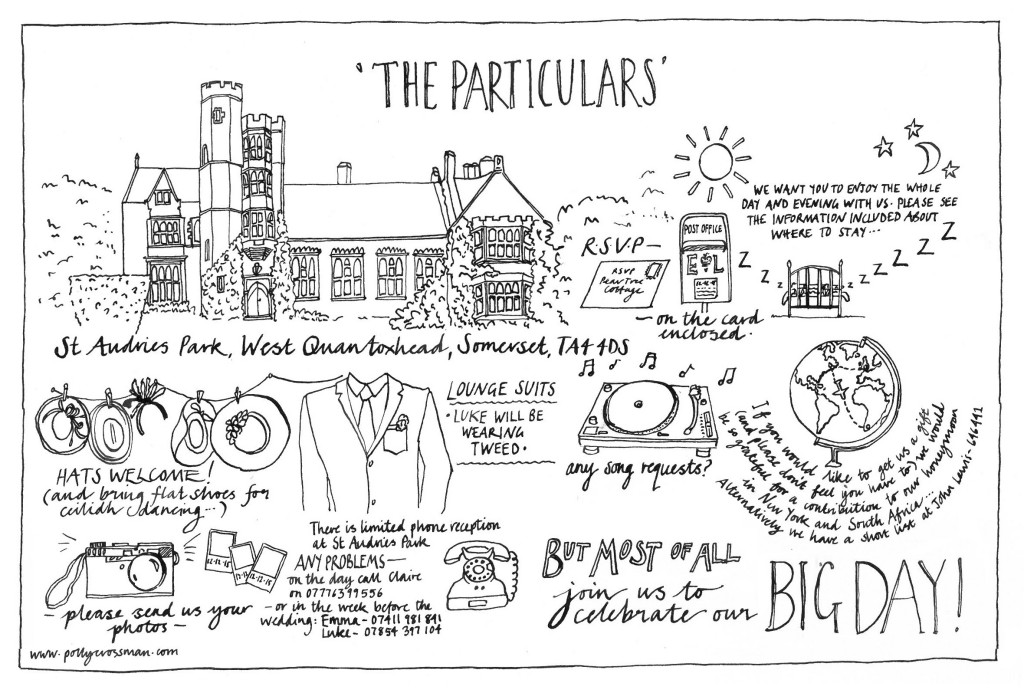 'THE PARTICULARS'
WE WANT YOU TO ENJOY THE WHOLE
DAY AND EVENING WITH US. PLEASE SEE
THE INFORMATION INCLUDED ABOUT
WHERE TO STAY...
R.S.V.P—
RSVP
Pear Tree
Cottage
POST OFFICE
E L
12.12.15
Z Z Z Z Z Z Z
— on the card
enclosed.
St Audries Park, West Quantoxhead, Somerset, TA4 4DS
HATS WELCOME!
(and bring flat shoes for
ceilidh dancing...)
LOUNGE SUITS
• LUKE WILL BE
WEARING
TWEED •
any song requests?
If you would like to get us a gift
(and please don't feel you have to) we would
be so grateful for a contribution to our honeymoon
in New York and South Africa...
Alternatively we have a short list at John Lewis - 646412
— please send us your
photos —
12.12.15
There is limited phone reception
at St Audries Park
ANY PROBLEMS —
on the day call Claire
on 07776399556
— or in the week before the
wedding: Emma - 07411 981 841
Luke - 07854 397 104
BUT MOST OF ALL
join us to
celebrate our
BIG DAY!
www.pollycrossman.com